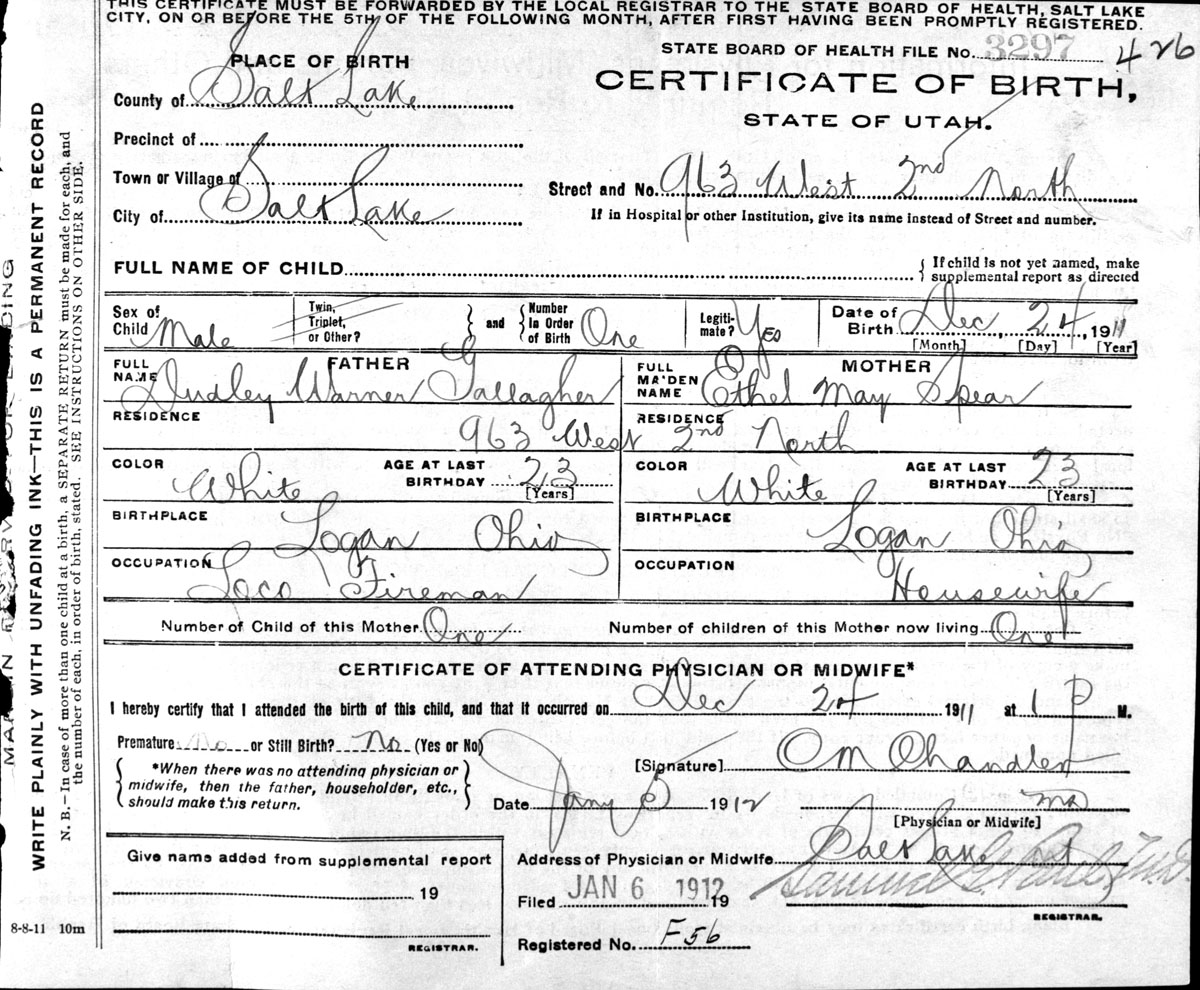 THIS CERTIFICATE MUST BE FORWARDED BY THE LOCAL REGISTRAR TO THE STATE BOARD OF HEALTH, SALT LAKE
CITY, ON OR BEFORE THE 5TH OF THE FOLLOWING MONTH, AFTER FIRST HAVING BEEN PROMPTLY REGISTERED.
STATE BOARD OF HEALTH FILE No. 3297 426
PLACE OF BIRTH
CERTIFICATE OF BIRTH,
County of Salt Lake
STATE OF UTAH.
Precinct of
Town or Village of
Street and No. 963 West 2nd North
City of Salt Lake
If in Hospital or other Institution, give its name instead of Street and number.
FULL NAME OF CHILD
{ If child is not yet named, make
supplemental report as directed
Sex of Child Male
Twin, Triplet, or Other?
} and { Number in Order of Birth One
Legiti- mate? Yes
Date of Birth Dec, 24, 1911
[Month] [Day] [Year]
FATHER
FULL NAME Dudley Warner Gallagher
MOTHER
FULL MAIDEN NAME Ethel May Spear
RESIDENCE RESIDENCE
963 West 2nd North
COLOR White AGE AT LAST BIRTHDAY 23 [Years]
COLOR White AGE AT LAST BIRTHDAY 23 [Years]
BIRTHPLACE Logan Ohio
BIRTHPLACE Logan Ohio
OCCUPATION Loco Fireman
OCCUPATION Housewife
Number of Child of this Mother One Number of children of this Mother now living One
CERTIFICATE OF ATTENDING PHYSICIAN OR MIDWIFE*
I hereby certify that I attended the birth of this child, and that it occurred on Dec 24 1911 at 1 P M.
Premature No or Still Birth? No (Yes or No)
[Signature] O M Chandler
{ *When there was no attending physician or
midwife, then the father, householder, etc.,
should make this return. }
Date Jany 5 1912
MD
[Physician or Midwife]
Give name added from supplemental report
19
REGISTRAR.
Address of Physician or Midwife Salt Lake
Filed JAN 6 1912 19
REGISTRAR.
Registered No. F56
8-8-11 10m
WRITE PLAINLY WITH UNFADING INK—THIS IS A PERMANENT RECORD
N. B.—In case of more than one child at a birth, a SEPARATE RETURN must be made for each, and
the number of each, in order of birth, stated. SEE INSTRUCTIONS ON OTHER SIDE.